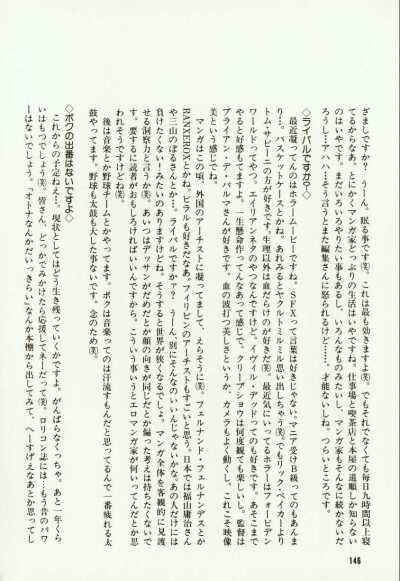 ざましですか？うーん。眠る事です㊟。これは最も効きますよ㊟でもそれでなくても毎日九時間以上寝
てるからなあ。とにかくマンガ家どっぷりの生活はいやですね。仕事場と喫茶店と本屋の道順しか知らない
のはいやです。まだいろいろやりたい事もあるし、いろんなものみたいし、マンガ家もそんなに続かないだ
ろうし…アハハ…そう言うとまた編集さんに怒られるけど……。才能ないしね。つらいところです。
◇ライバルですか？◇
最近凝ってんのはホーム・ビデオですね。SFXって言葉は好きじゃない。マニア受けB級ってのもあんま
り…。バスケットケースとかね。あれみるとウルトルミルミル思い出しちゃう㊟。でもリック・ベイカーより
トム・サビーニの方が好きです。生理以外は血だけのが好きだ㊟。最近気にいってるホラーはフォービデン
ワールドってやつ。エイリアンネタのやつなんですけど。イヴィル・デッドってのも好きです。あそこまで
やると好感もてますよ。一生懸命作ってんなあって感じで。クリープショウは何度観ても楽しいし。監督は
ブライアン・デ・パルマさんが好きです。血の波打つ美しさというか、カメラもよく動くし、これこそ映像
美という感じでね。
マンガはこの頃、外国のアーチストに凝ってまして、えらそうに㊟。フェルナンド・フェルナンデスとか
RANXEROXとかね。ビラルも好きだなあ。フィリピンのアーチストもすごいと思う。日本では福山庸治さん
や三山のぼるさんとか…。ライバルですかァ？うーん、別にそんなのいいんじゃないかな。あの人だけには
負けたくない！みたいのありますけどね。そうすると世界が狭くなるでしょ。マンガ全体を客観的に見渡
せる洞察力と言うか㊟。あいつはデッサンがだめだとか顔の向きが同じだとか偏った考えは持ちたくないで
す。要するに読者がおもしろければいいんですから。こういう事いうとエロマンガ家が何いってんだとか思
われそうですけどね㊟。
後は音楽とか野球チームとかやってます。ボクは音楽ってのは汗流すもんだと思ってるんで一番疲れる太
鼓やってます。野球も太鼓も大した事ないです。念のため㊟。
◇ボクの出番はないですよ◇
これからの予定ねェ…。現状としてはどう生き残っていくかですよ。がんばらなくっちゃ。あと一年くら
いはもつでしょう㊟。皆さん、どっかでみかけたら応援してネーだって㊟。ロリコン誌には…もう昔のパワ
ーはないでしょう。「オトナなんかだいっきらい」なんか本棚から出してみて、へーすげえなあとか思ってし
146